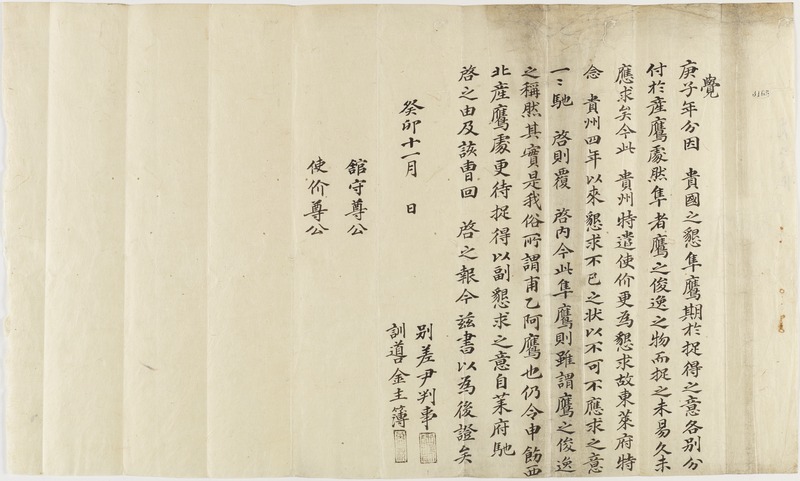 覺
庚子年分因 貴國之懇隼鷹期於捉得之意各別分
付於産鷹處然隼者鷹之俊逸之物而捉之未易久未
應求矣今此 貴州特遣使价更為懇求故東萊府特
念 貴州四年以來懇求不已之状以不可不應求之意
一〻馳 啓則覆 啓内今此隼鷹則雖謂鷹之俊逸
之稱然其實是我俗所謂甫乙阿鷹也仍令申飭西
北産鷹處更待捉得以副懇求之意自萊府馳
啓之由及該曺回 啓之報今玆書以為後證矣
癸卯十一月 日
別差尹判事
訓導金主簿
舘守尊公
使价尊公